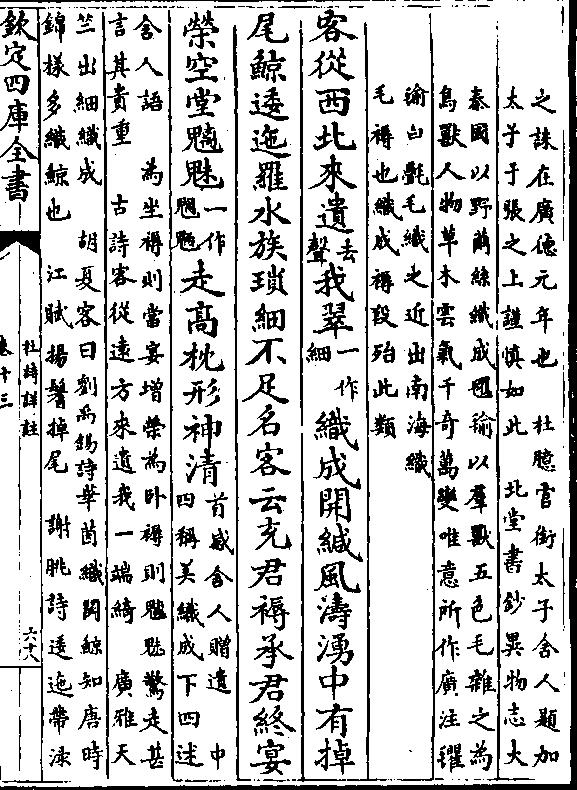 之誅在廣德元年也　杜臆官銜太子舍人題加
太子于張之上謹慎如此　北堂書鈔異物志大
秦國以野繭絲織成氍毹以羣獸五色毛雜之為
鳥獸人物草木雲氣千奇萬變唯意所作廣注㼆
毹白㲲毛織之近出南海織
毛褥也織成褥段殆此類
客從西北來遺去聲我翠一作細織成開緘風濤湧中有掉
尾鯨逶迤羅水族瑣細不足名客云充君褥承君終宴
榮空堂魑魅一作魍魎走高枕形神清首感舍人贈遺　中四稱美織成下四述
舍人語　為坐褥則當宴增榮為臥褥則魑魅驚走甚
言其貴重　古詩客從遠方來遺我一端綺　廣雅天
竺出細織成　胡夏客曰劉禹錫詩華茵織鬭鯨知唐時
錦樣多織鯨也　江賦揚鬐掉尾　謝朓詩逶迤帶渌
欽定四庫全書
杜詩詳註
卷十三
六十八